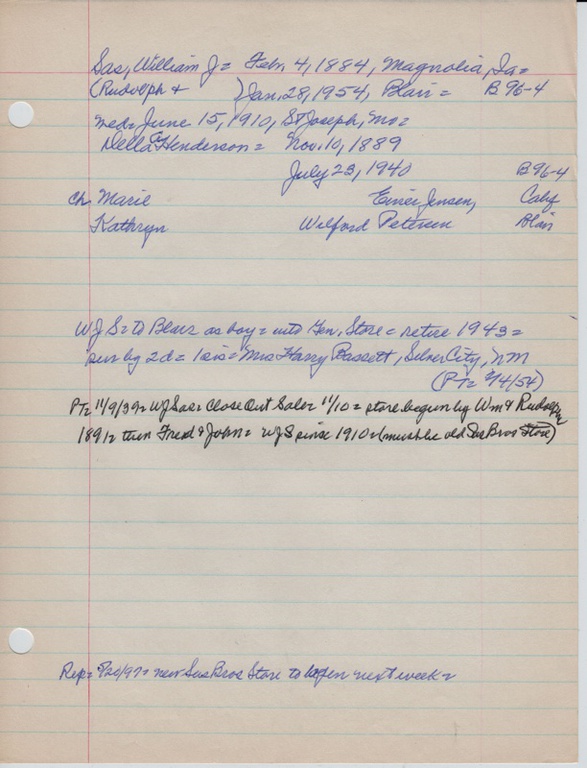 Sas, William J = Febr. 4, 1884, Magnolia, Ia =
(Rudolph + ) Jan. 28, 1954, Blair = B 96-4
med = June 15, 1910, St Joseph, Mo =
Della Henderson = Nov. 10, 1889
July 23, 1940 B 96-4
ch Marie Einer Jensen, Calif
Kathryn Wilford Petersen Blair
WJS = to Blair as boy = into Gen, Store = retire 1943 =
surv by 2d = 1 sis = Mrs Harry Bassett, Silver City, NM
(PT = 2/4/54)
PT = 11/9/39 = WJ Sas = Close Out Sale = 11/10 = store begun by Wm & Rudolph
1891 = then Fred & John = WJS since 1910 = (must be old Sas Bros Store)
Rep = = new Sas Bros Store to open next week =